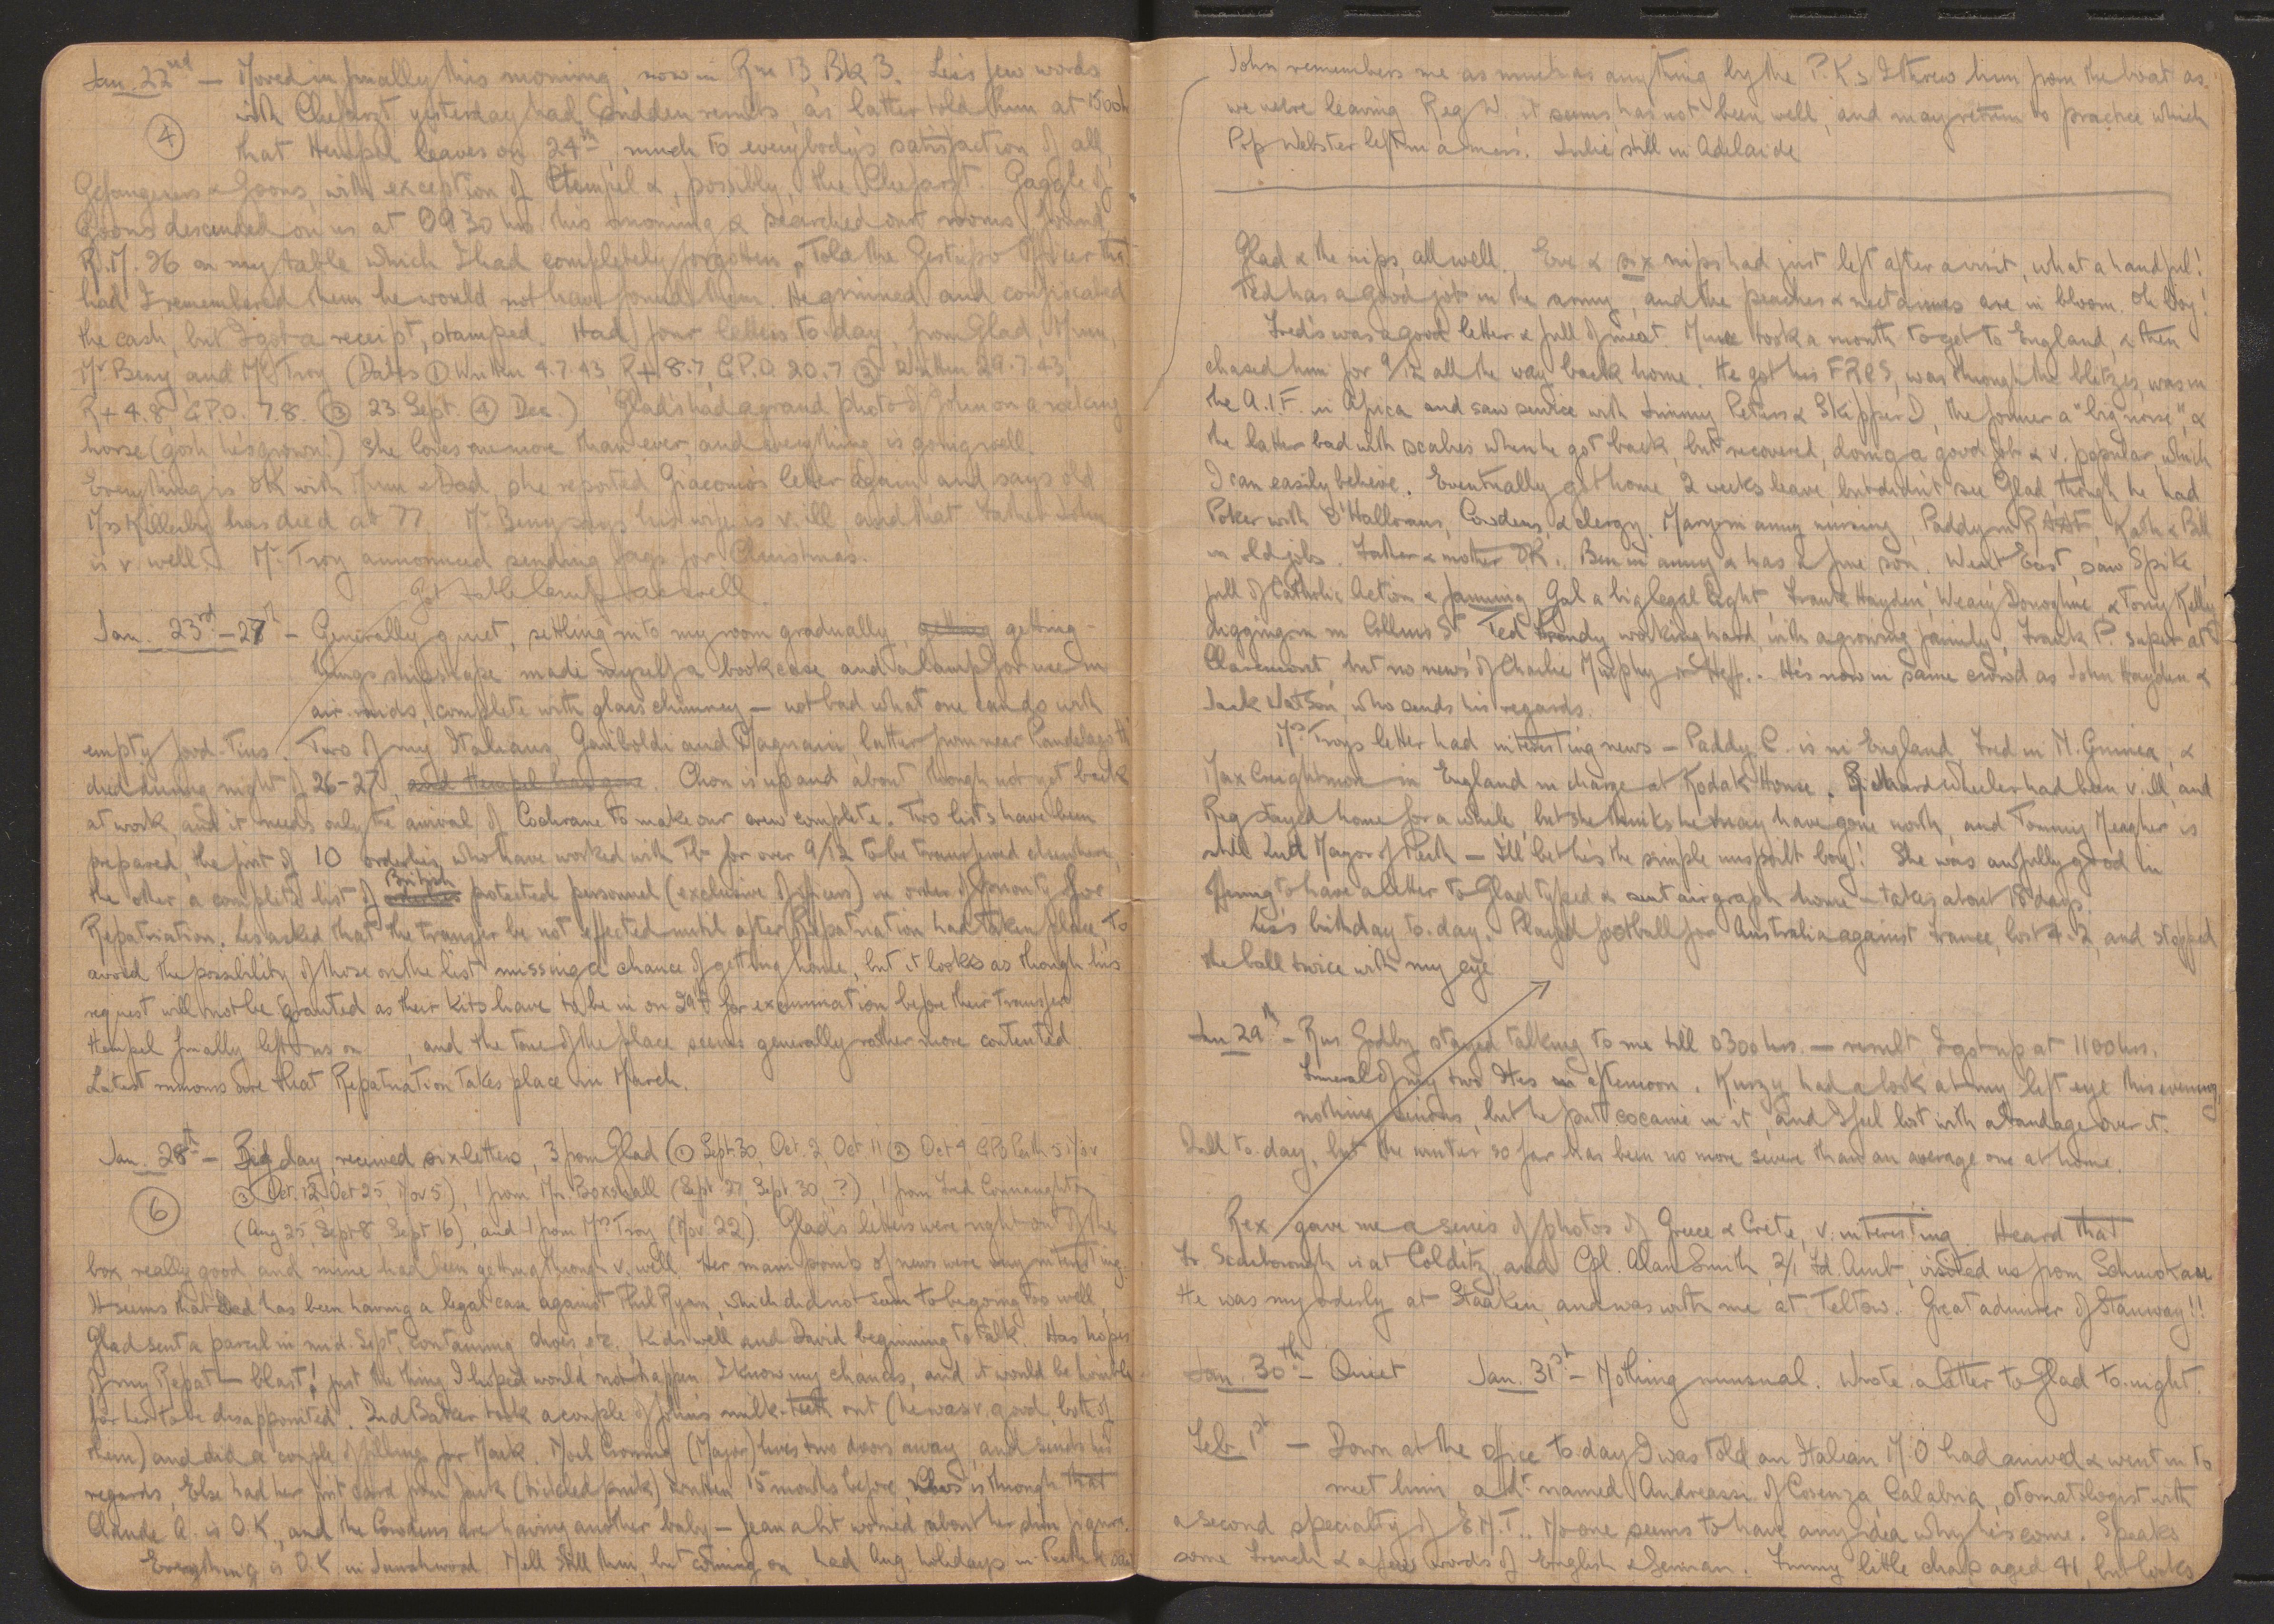 Jan. 22nd — Moved in finally this morning, now in Rm 13 Bk 3. Les's few words
with Chefarzt yesterday had sudden results, as latter told him at 1500h
④ that Hempel leaves on 24th, much to everybody's satisfaction of all,
Gefangeners & Goons, with exception of Hempel &, possibly, the Chefarzt. Gaggle of
Goons descended on us at 0930 hrs this morning & searched our rooms, found
R.M. 26 on my table which I had completely forgotten. Told the Gestapo Officer that
had I remembered them he would not have found them. He grinned and confiscated
the cash, but I got a receipt, stamped. Had four letters to-day, from Glad, Mum,
Mr Beny and Mr Troy (Dates ① Written 4.7.43, R+ 8.7, G.P.O. 20.7 ② Written 29.7.43,
R+ 4.8, G.P.O. 7.8. ③ 23 Sept. ④ Dec.) Glad's had a grand photo of John on a rocking
horse (gosh, he's grown!) She loves me more than ever, and everything is going well.
Everything is OK with Mum & Dad, she reported Giacomo's letter again and says old
Mrs Killerby has died at 77. Mr Beny says his wife is v. ill, and that Father John
is v. well. Mr Troy announced sending fags for Christmas.
Got table lamp as well.
Jan. 23rd – 27th – Generally quiet, settling into my room gradually, getting getting
things shipshape, made myself a bookcase and a lamp for use in
air-raids, complete with glass chimney — not bad what one can do with
empty food-tins. Two of my Italians, Gariboldi and Magnani, latter from near
died during night of 26–27, and Hempel has gone. Chon is up and about, though not yet back
at work, and it needs only the arrival of Cochrane to make our crew complete. Two lists have been
prepared, the first of 10 orderlies who have worked with Tb for over 9/12 to be transferred elsewhere,
the other a complete list of British protected personnel (exclusive officers) in order of priority for
Repatriation. Les asked that the transfer be not effected until after Repatriation had taken place, to
avoid the possibility of those on the list missing a chance of getting home, but it looks as though his
request will not be granted as their kits have to be in on 29th for examination before their transfer.
Hempel finally left us on , and the tone of the place seems generally rather more contented.
Latest rumours are that Repatriation takes place in March.
Jan. 28th — Big day, received six letters, 3 from Glad (① Sept 30, Oct. 2, Oct 11 ② Oct 4, GPO Perth 5 Nov
⑥ ③ Oct. 12, Oct 25, Nov 5), 1 from Mr. Boxshall (Sept 27, Sept 30, ?), 1 from Fred Connaughton
(Aug 25, Sept 8, Sept 16), and 1 from Mrs Troy (Nov. 22). Glad's letters were right out of the
box, really good, and mine had been getting through v. well. Her main points of news were very interesting.
It seems that Dad has been having a legal case against Phil Ryan, which did not seem to be going too well,
Glad sent a parcel in mid. Sept. containing shoes etc. Kids well and David beginning to talk. Has hopes
of my Repat — blast! just the thing I hoped would not happen. I know my chances, and it would be horrible
for her to be disappointed. Dud Barker took a couple of John's milk-teeth out (he was v. good, both of
them) and did a couple of fillings for Mark. Noel Cronning (Major) lives two doors away, and sends his
regards, Else had her first card from Jack (tickled pink) written 15 months before, is through that
Claude A. is O.K., and the Cowdens are having another baby — Jean a bit worried about her slim figure.
Everything is O.K. in Nell still thin, but coming on, had Aug. holidays in Perth &
John remembers me as much as anything by the P.K.s I threw him from the boat as
we were leaving. Reg W. it seems has not been well, and may return to practice which
Pop Webster left in a mess. Julie still in Adelaide
Glad & the nips, all well. Eve & six nips had just left after a visit, what a handful!
Ted has a good job in the army, and the peaches & nectarines are in bloom. Oh Boy!
Fred's was a good letter & full of meat. Mine took a month to get to England, & then
chased him for 9/12 all the way back home. He got his FRCS, was through the blitzes, was in
the A.I.F. in Africa and saw service with Jimmy Peters & Skipper D, the former a "big noise", &
the latter bad with scabies when he got back, but recovered, doing a good job & v. popular, which
I can easily believe. Eventually got home, 2 weeks leave, but didn't see Glad, though he had
Poker with O'Hallorans, Cowdens, & clergy. Mary in army nursing, Paddy in RAAF, Kath & Bill
in old jobs. Father & mother OK. Ben in army & has a fine son. Went East, saw Spike,
full of Catholic Action & farming, Gal a big legal light, Frank Hayden, Weary Donoghue, & Tony Kelly
digging in in Collins St. Ted Brandy working hard, with a growing family, Frank P. super at
Claremont, but no news of Charlie Murphy or Heff. He's now in same crowd as John Hayden &
Jack Watson, who sends his regards.
Mrs Troy's letter had interesting news — Paddy C. is in England, Fred in N. Guinea, &
Max Creightmore in England in charge at Kodak House. Richard Wheeler had been v. ill, and
Reg stayed home for a while, but she thinks he may have gone north, and Tommy Meagher is
still Lud Mayor of Perth — I'll bet he's the simple unspoilt boy! She was awfully good in
offering to have a letter to Glad typed & sent airgraph home — takes about 18 days.
Les's birthday to-day. Played football for Australia against France, lost 4-2, and stopped
the ball twice with my eye
Jan 29th – Rus. Godby stayed talking to me till 0300 hrs. — result, I got up at 1100 hrs.
Funeral of my two Ities in afternoon. Kurzy had a look at my left eye this evening,
nothing serious, but he put cocaine in it, and I feel lost with a bandage over it.
Dull to-day, but the winter so far has been no more severe than an average one at home.
Rex gave me a series of photos of Greece & Crete, v. interesting. Heard that
Fr. Scarborough is at Colditz, and Cpl. Alan Smith, 2/1 Fd. Amb, visited us from Schmokau
He was my orderly at Staaken, and was with me at Teltow. Great admirer of Stanway!!
Jan. 30th – Quiet Jan. 31st – Nothing unusual. Wrote a letter to Glad to-night.
Feb. 1st — Down at the office to-day I was told an Italian M.O had arrived & went in to
meet him, a Lt. named Andreassi of Cosenza, Calabria, stomatologist with
a second specialty of E.N.T. No one seems to have any idea why he's come. Speaks
some French & a few words of English & German. Funny little chap aged 41, but looks